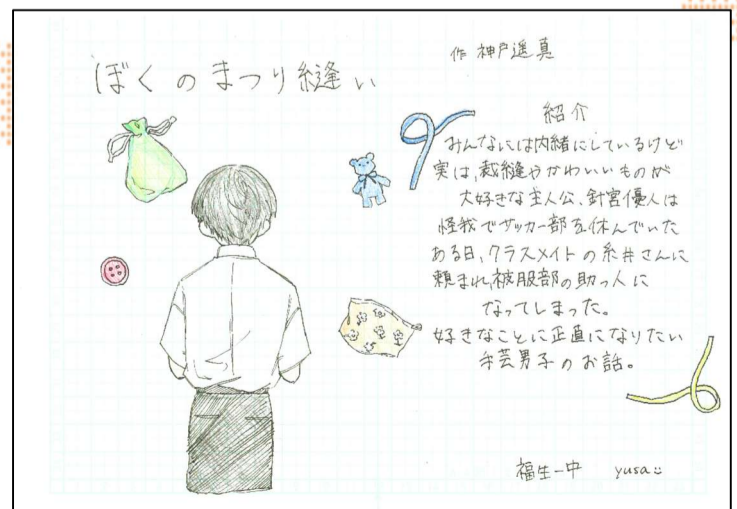 ぼくのまつり縫い
作 神戸遥真
紹介
みんなには内緒にしているけど
実は、裁縫やかわいいものが
大好きな主人公、針宮優人は
怪我でサッカー部を休んでいた
ある日、クラスメイトの糸井さんに
頼まれ、被服部の助っ人に
なってしまった。
好きなことに正直になりたい
手芸男子のお話。
福生一中 yusa